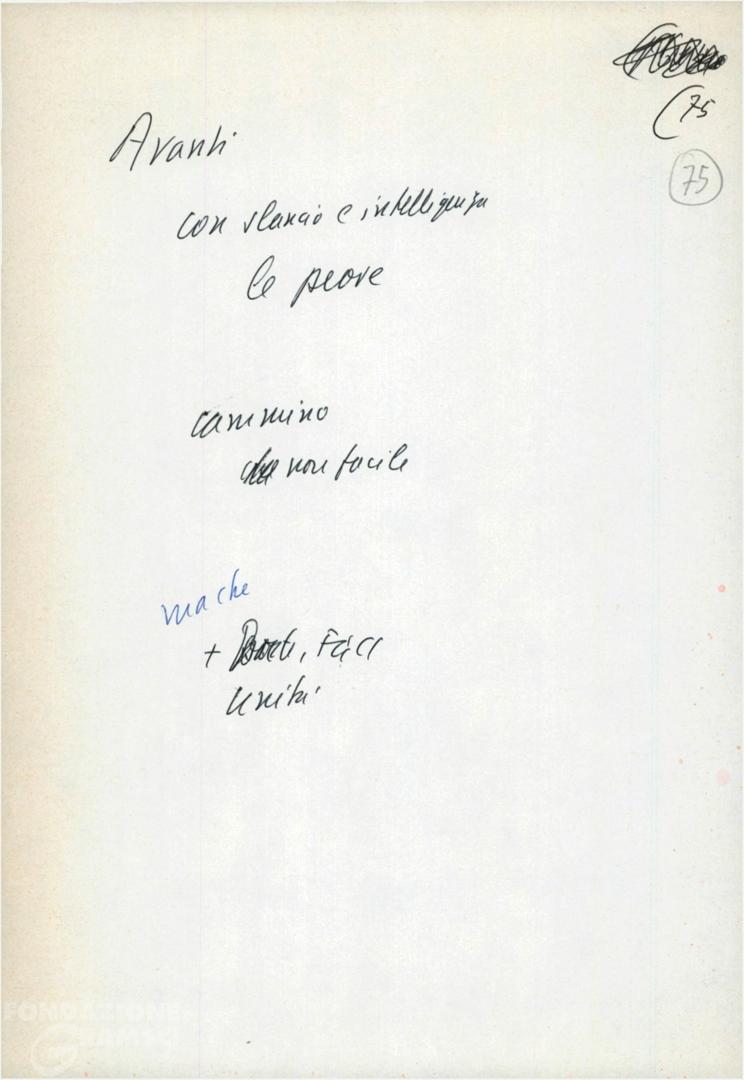 (75
75
Avanti
con slancio e intelligenza
le prove
cammino
non facile
ma che
+
Uniti
FONDAZIONE
GRAMSCI